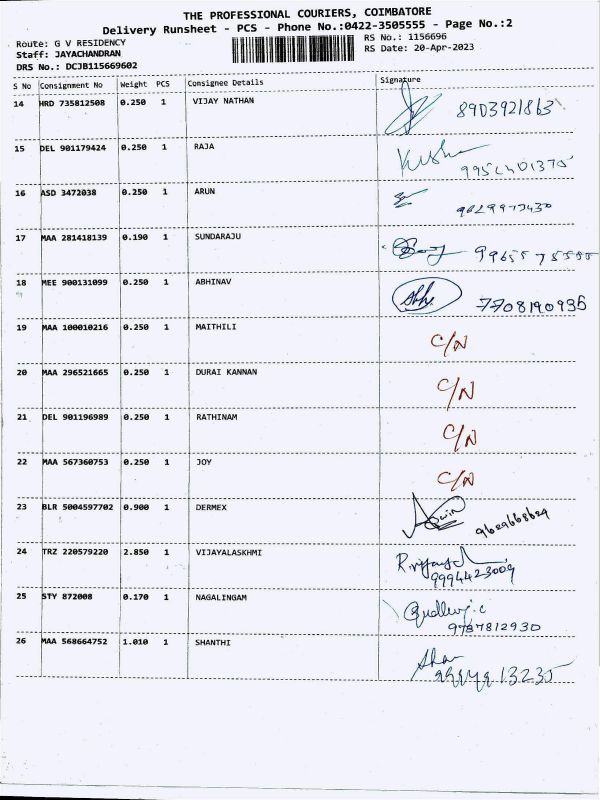 THE PROFESSIONAL COURIERS, COIMBATORE
Delivery Runsheet - PCS - Phone No.:0422-3505555 - Page No.:2
Route: G V RESIDENCY
Staff: JAYACHANDRAN
DRS No.: DCJB115669602
RS No.: 1156696
RS Date: 20-Apr-2023
S No Consignment No Weight PCS Consignee Details Signature
14 HRD 735812508 0.250 1 VIJAY NATHAN 8903921863
15 DEL 901179424 0.250 1 RAJA
16 ASD 3472038 0.250 1 ARUN
17 MAA 281418139 0.190 1 SUNDARAJU
18 MEE 900131099 0.250 1 ABHINAV 7708190935
19 MAA 100010216 0.250 1 MAITHILI C/N
20 MAA 296521665 0.250 1 DURAI KANNAN C/N
21 DEL 901196989 0.250 1 RATHINAM C/N
22 MAA 567360753 0.250 1 JOY C/N
23 BLR 5004597702 0.900 1 DERMEX 9629668629
24 TRZ 220579220 2.850 1 VIJAYALASKHMI
9994423009
25 STY 872008 0.170 1 NAGALINGAM
9787812930
26 MAA 568664752 1.010 1 SHANTHI